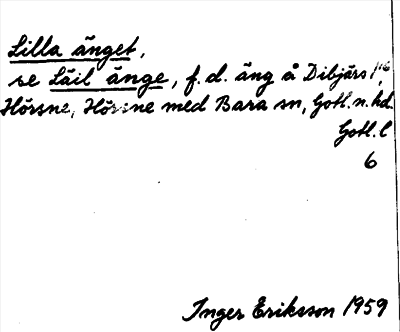 Lilla änget,
se Läil änge, f.d. äng å Dibjärs 1/16
Hörsne, Hörsne med Bara sn, Gotl.n.hd.
Gotl.l
6
Inger Eriksson 1959